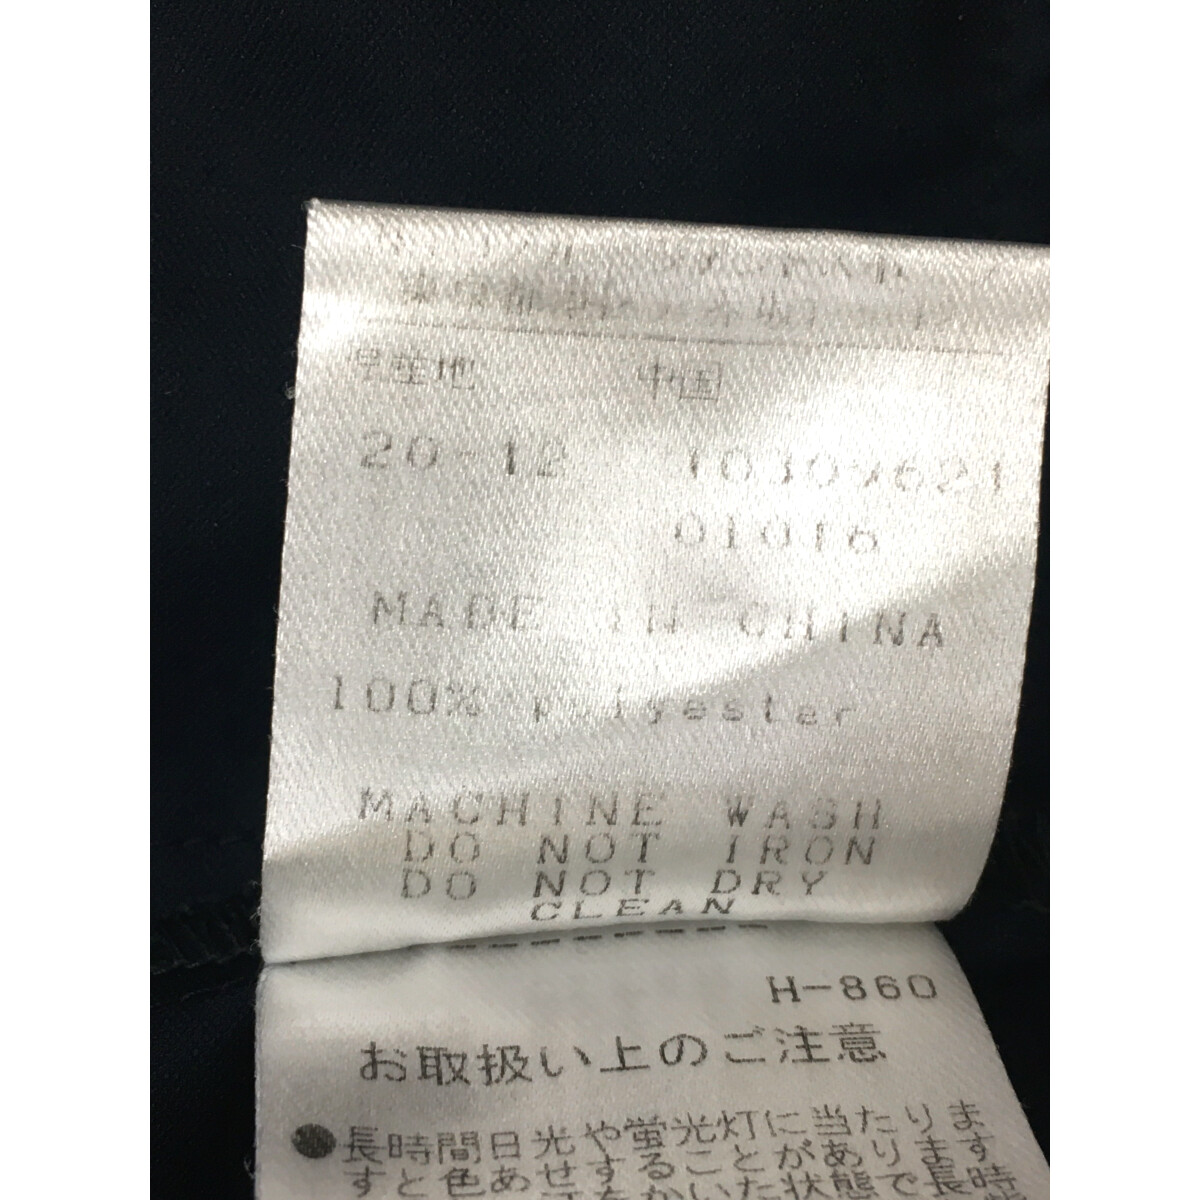 原産地 中国
20-12 10309621
01016
MADE IN CHINA
100% polyester
MACHINE WASH
DO NOT IRON
DO NOT DRY
CLEAN
H-860
お取扱い上のご注意
●長時間日光や蛍光灯に当たりま
すと色あせすることがあります
をかいた状態で長時